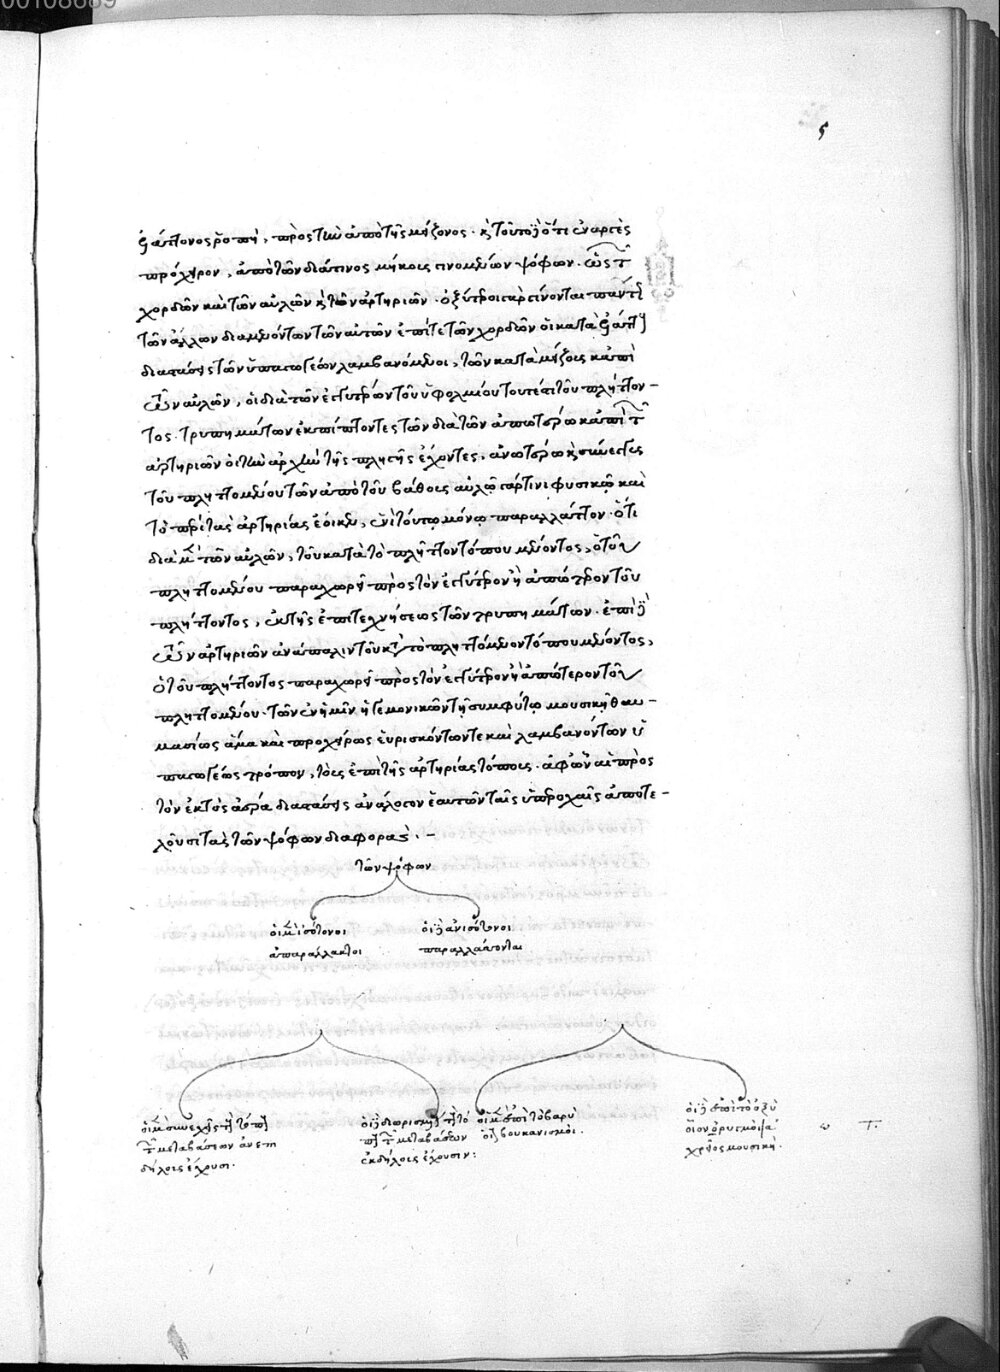 00108689
5
ἐλάττονος ῥοπή, πρὸς τὴν ἀπὸ τῆς μείζονος. καὶ τοῦτο δὲ ὅτι ἐναργὲς
πρόχειρον, ἀπὸ τῶν διά τινος μήκους γινομένων ψόφων. ὡς τῶν
χορδῶν καὶ τῶν αὐλῶν καὶ τῶν ἀρτηριῶν. ὀξύτεροι γὰρ γίνονται πάντη
τῶν ἄλλων διαμενόντων τῶν αὐτῶν ἐπί τε τῶν χορδῶν οἱ κατὰ ἐλάττους
διαστάσεις τῶν ὑπαγωγέων λαμβανόμενοι, τῶν κατὰ μείζους καὶ ἐπὶ
τῶν αὐλῶν, οἱ διὰ τῶν ἐγγυτέρων τοῦ ὑφολμίου τουτέστι τοῦ πλήττον-
τος τρυπημάτων ἐκπίπτοντες τῶν διὰ τῶν ἀπωτέρω καὶ ἐπὶ τῶν
ἀρτηριῶν οἱ τὴν ἀρχὴν τῆς πληγῆς ἔχοντες, ἀνωτέρω καὶ σύνεγγυς
τοῦ πληττομένου τῶν ἀπὸ τοῦ βάθους αὐλῷ γάρ τινι φυσικῷ καὶ
τὸ περὶ τὰς ἀρτηρίας ἔοικεν, ἑνὶ τούτῳ μόνῳ παραλλάττον. ὅτι
διὰ μὲν τῶν αὐλῶν, τοῦ κατὰ τὸ πλῆττον τόπου μένοντος, ὁ τοῦ
πληττομένου παραχωρεῖ πρὸς τὸν ἐγγύτερον ἢ ἀπώτερον τοῦ
πλήττοντος, ἐκ τῆς ἐπιτεχνήσεως τῶν τρυπημάτων. ἐπὶ δὲ
τῶν ἀρτηριῶν ἀνάπαλιν τοῦ κατὰ τὸ πληττόμενον τόπου μένοντος,
ὁ τοῦ πλήττοντος παραχωρεῖ πρὸς τὸν ἐγγύτερον ἢ ἀπώτερον τοῦ
πληττομένου. τῶν ἐν ἡμῖν ἡγεμονικῶν τῇ συμφύτῳ μουσικῇ θαυ-
μασίως ἅμα καὶ προχείρως εὑρισκόντων τε καὶ λαμβανόντων ὑ
παγωγέως τρόπον, τοὺς ἐπὶ τῆς ἀρτηρίας τόπους. ἀφ' ὧν αἱ πρὸς
τὸν ἐκτὸς ἀέρα διαστάσεις ἀνάλογον ἑαυτῶν ταῖς ὑπεροχαῖς ἀποτε-
λοῦσι τὰς τῶν ψόφων διαφοράς. –
τῶν ψόφων
οἱ μὲν ἰσότονοι οἱ δὲ ἀνισότονοι
ἀπαράλλακτοι παραλλάσσονται
οἱ μὲν συνεχεῖς τῇ τόπῳ
τῶν μεταβάσεων ἀνεπι
δήλους ἔχουσι.
οἱ δὲ διωρισμένοι τῇ τό
πῳ τῶν μεταβάσεων
ἐκδήλους ἔχουσιν:
οἱ μὲν ἐπὶ τὸ βαρὺ
οἱ βουκανισμοί.
οἱ δὲ ἐπὶ τὸ ὀξὺ
χρῆσις μουσική.